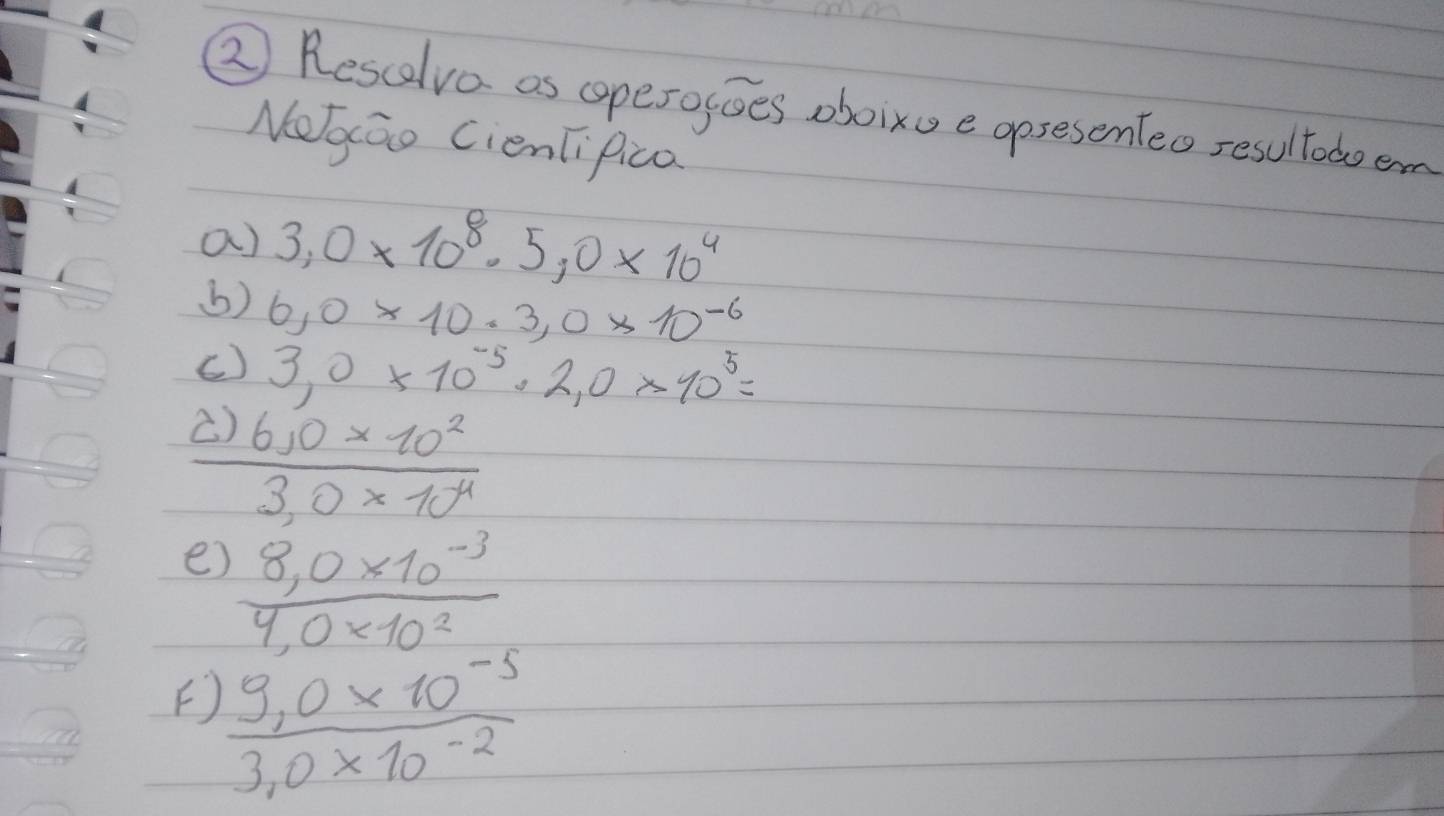 ② Resolva as operações abaixo e apresente o resultado em
Notação Científica
a) 3,0 × 10⁸ . 5,0 × 10⁴
b) 6,0 × 10 . 3,0 × 10⁻⁶
c) 3,0 × 10⁻⁵ . 2,0 × 10⁵ =
d) 6,0 × 10²
3,0 × 10⁴
e) 8,0 × 10⁻³
4,0 × 10²
F) 9,0 × 10⁻⁵
3,0 × 10⁻²